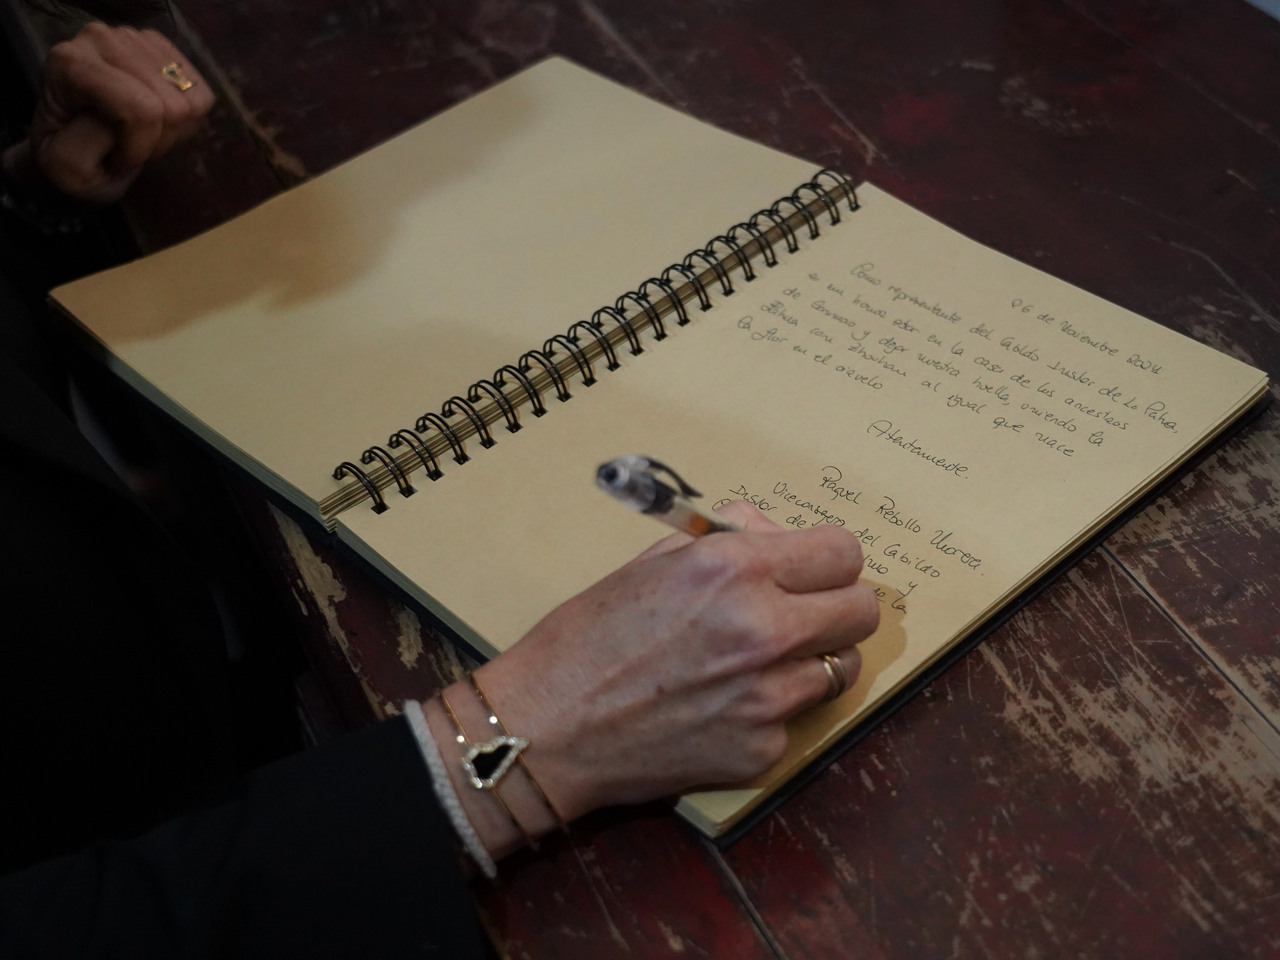 06 de Noviembre 2024
Como representente del Cabildo Insular de La Palma,
e un honor estar en la casa de los ancestros
de y dejar nuestra huella, uniendo la
con Zhaihan al igual que nace
la flor en el
Atentamente.
Raquel Rebollo
Viceconsejera del Cabildo
Insular de y
de la